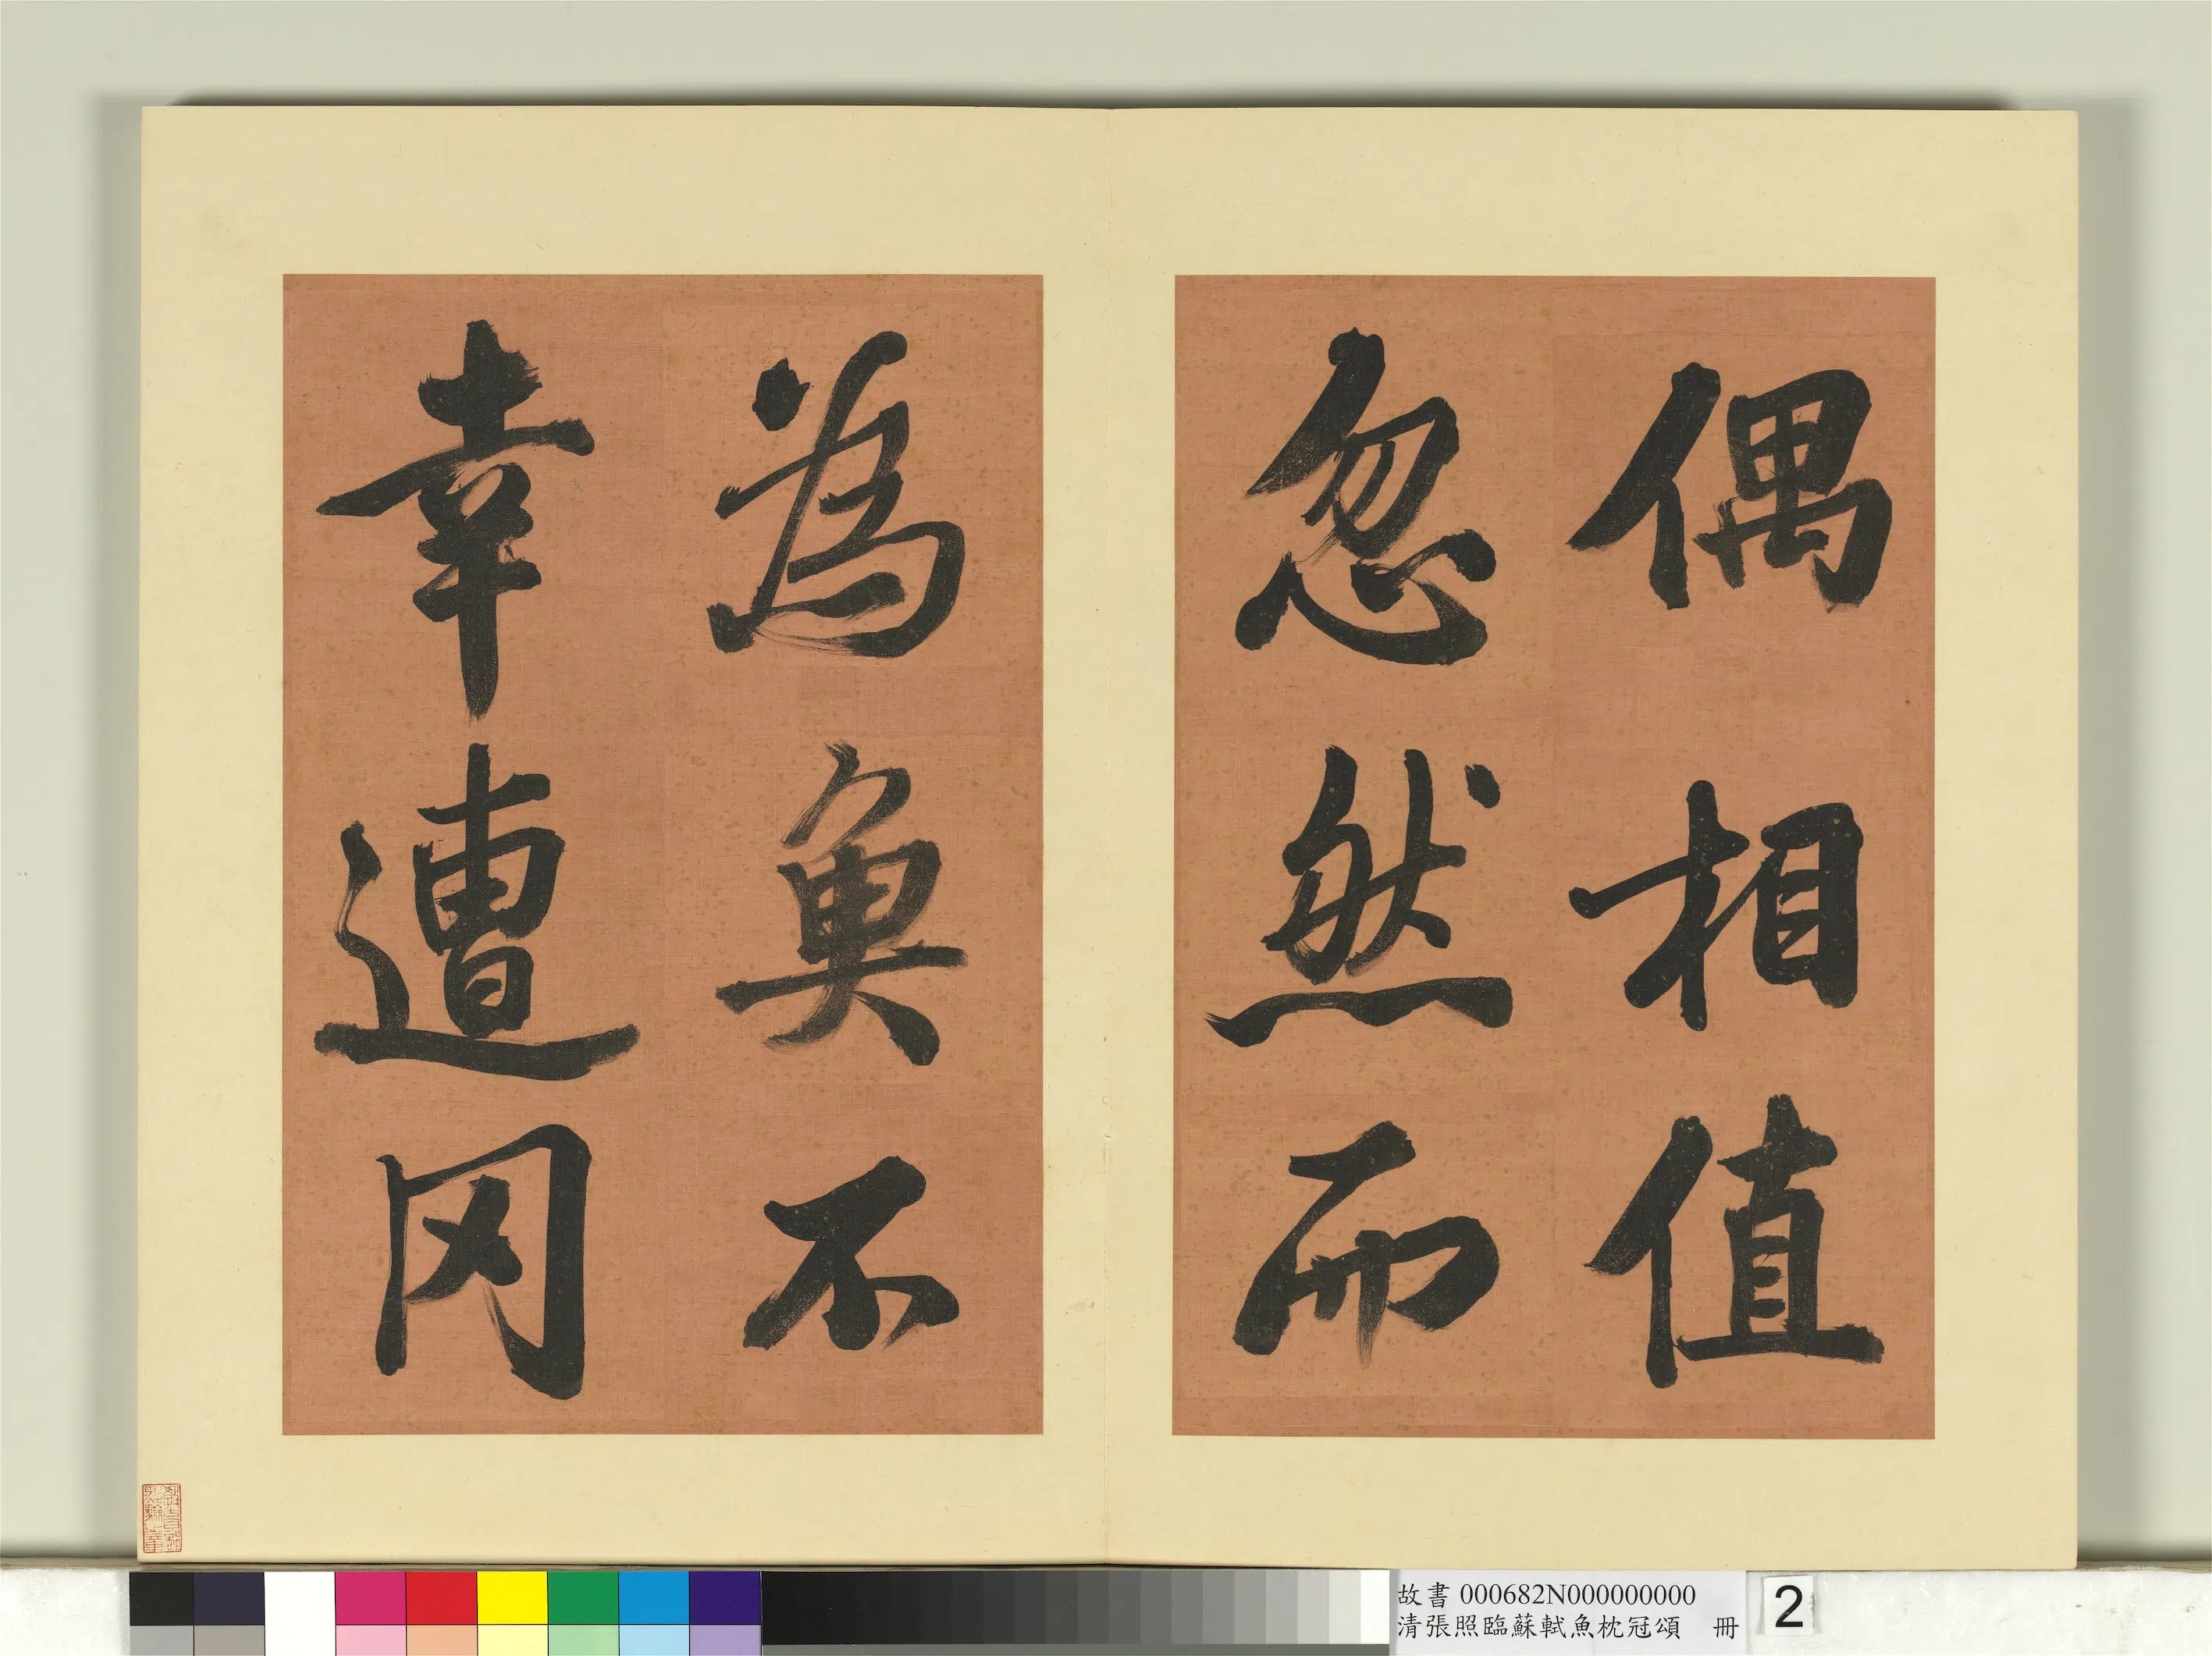 偶相值
忽然而
為魚不
幸遭冈
故書 000682N000000000
清張照臨蘇軾魚枕冠頌 冊
2